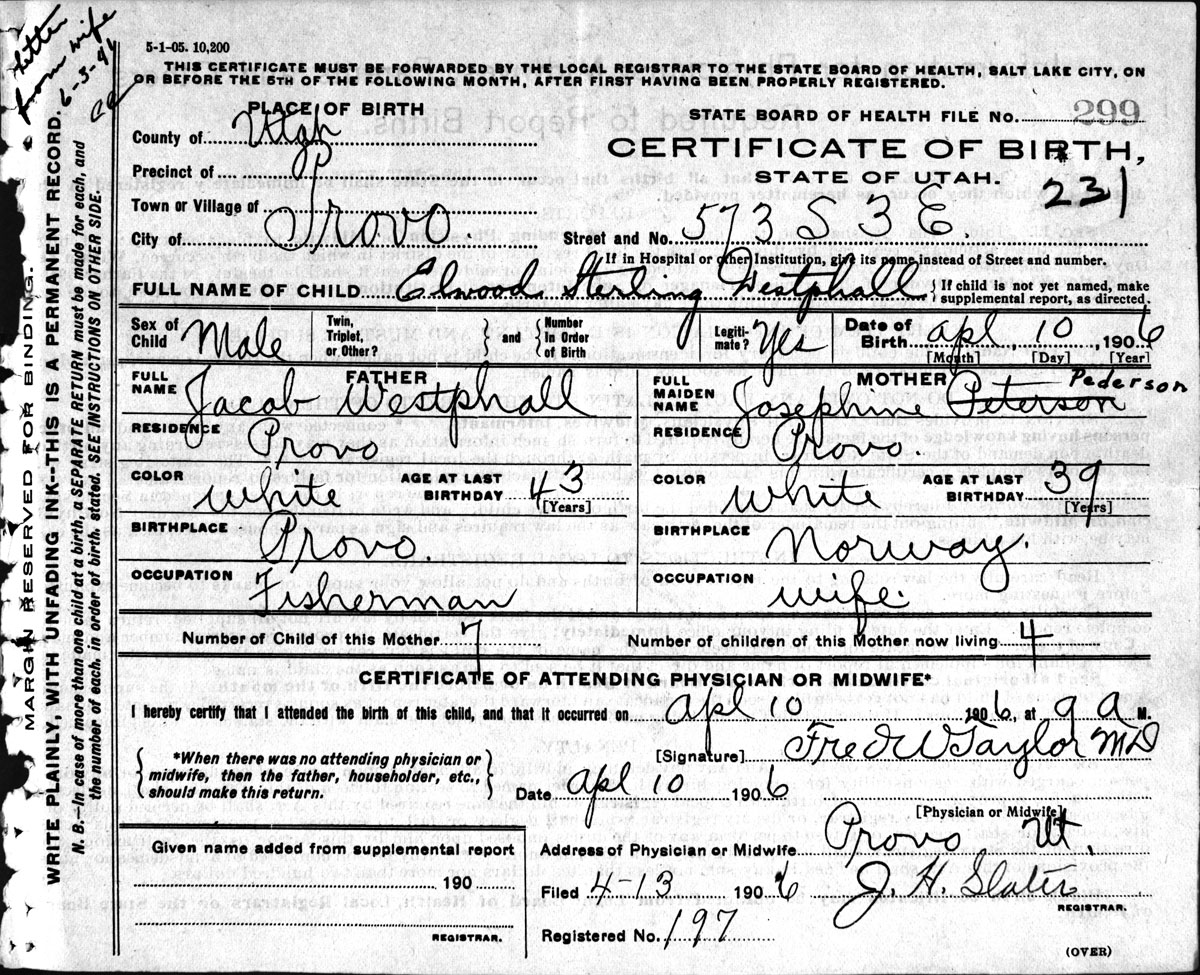 letter
from wife
6-3-94
5-1-05. 10,200
THIS CERTIFICATE MUST BE FORWARDED BY THE LOCAL REGISTRAR TO THE STATE BOARD OF HEALTH, SALT LAKE CITY, ON
OR BEFORE THE 5TH OF THE FOLLOWING MONTH, AFTER FIRST HAVING BEEN PROPERLY REGISTERED.
MARGIN RESERVED FOR BINDING.
WRITE PLAINLY, WITH UNFADING INK--THIS IS A PERMANENT RECORD.
N. B.—In case of more than one child at a birth, a SEPARATE RETURN must be made for each, and
the number of each, in order of birth, stated. SEE INSTRUCTIONS ON OTHER SIDE.
PLACE OF BIRTH
County of Utah
Precinct of
Town or Village of
City of Provo.
STATE BOARD OF HEALTH FILE No. 299
CERTIFICATE OF BIRTH,
STATE OF UTAH.
231
Street and No. 573 S 3 E
If in Hospital or other Institution, give its name instead of Street and number.
FULL NAME OF CHILD Elwood Sterling Westphall { If child is not yet named, make
supplemental report, as directed.
Sex of Child Male Twin, Triplet, or Other? } and { Number In Order of Birth Legiti- mate? Yes Date of Birth Apl, 10, 1906
[Month] [Day] [Year]
FATHER
FULL NAME Jacob Westphall
RESIDENCE Provo
COLOR White AGE AT LAST BIRTHDAY 43
[Years]
BIRTHPLACE Provo
OCCUPATION Fisherman
MOTHER
FULL MAIDEN NAME Josephine Peterson Pederson
RESIDENCE Provo.
COLOR White AGE AT LAST BIRTHDAY 39
[Years]
BIRTHPLACE Norway.
OCCUPATION Wife.
Number of Child of this Mother 7 Number of children of this Mother now living 4
CERTIFICATE OF ATTENDING PHYSICIAN OR MIDWIFE*
I hereby certify that I attended the birth of this child, and that it occurred on Apl 10 1906, at 9 A M.
[Signature] Fred W Taylor MD
{ *When there was no attending physician or
midwife, then the father, householder, etc.,
should make this return. }
Date Apl 10 1906
[Physician or Midwife]
Given name added from supplemental report
190
REGISTRAR.
Address of Physician or Midwife Provo Ut.
Filed 4-13 1906 J. H. Slater
REGISTRAR.
Registered No. 197
(OVER)